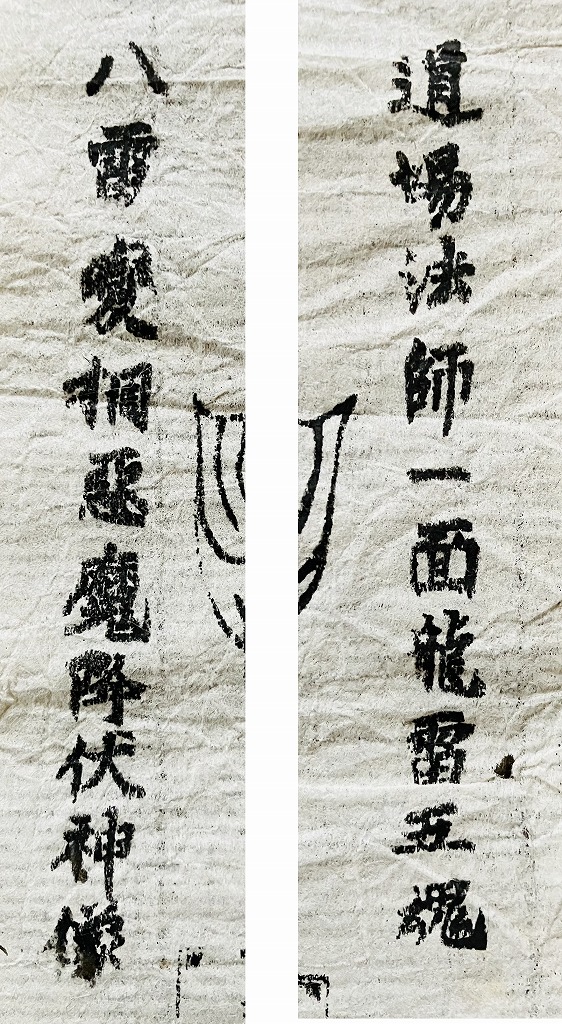 道場法師一面龍雷五魂
八雷惡魔降伏神